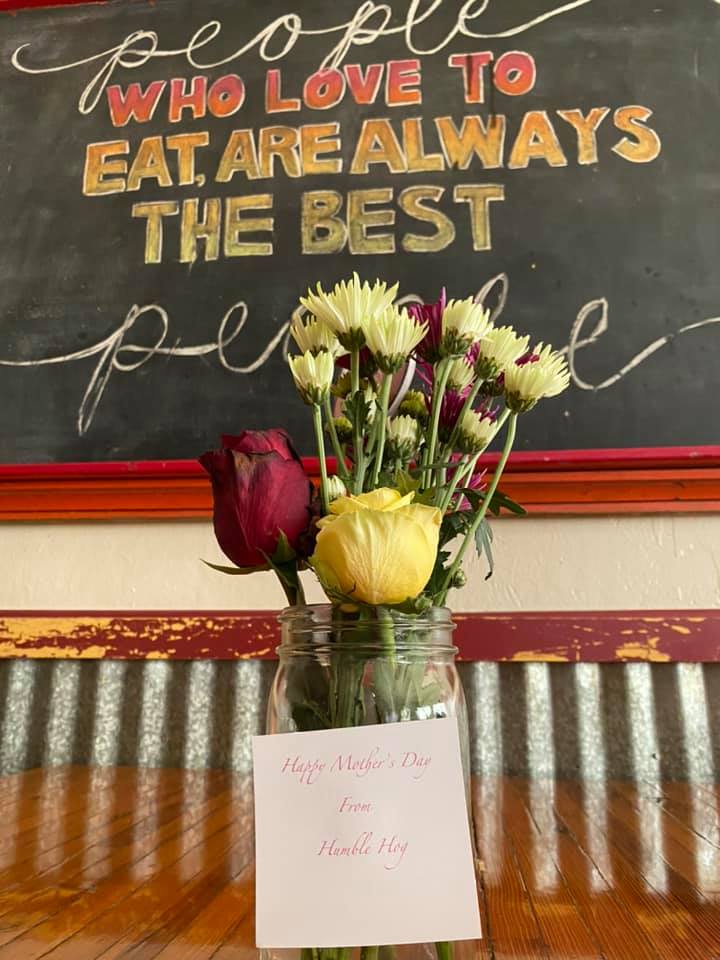 people
WHO LOVE TO
EAT, ARE ALWAYS
THE BEST
people
Happy Mother's Day
From
Humble Hog